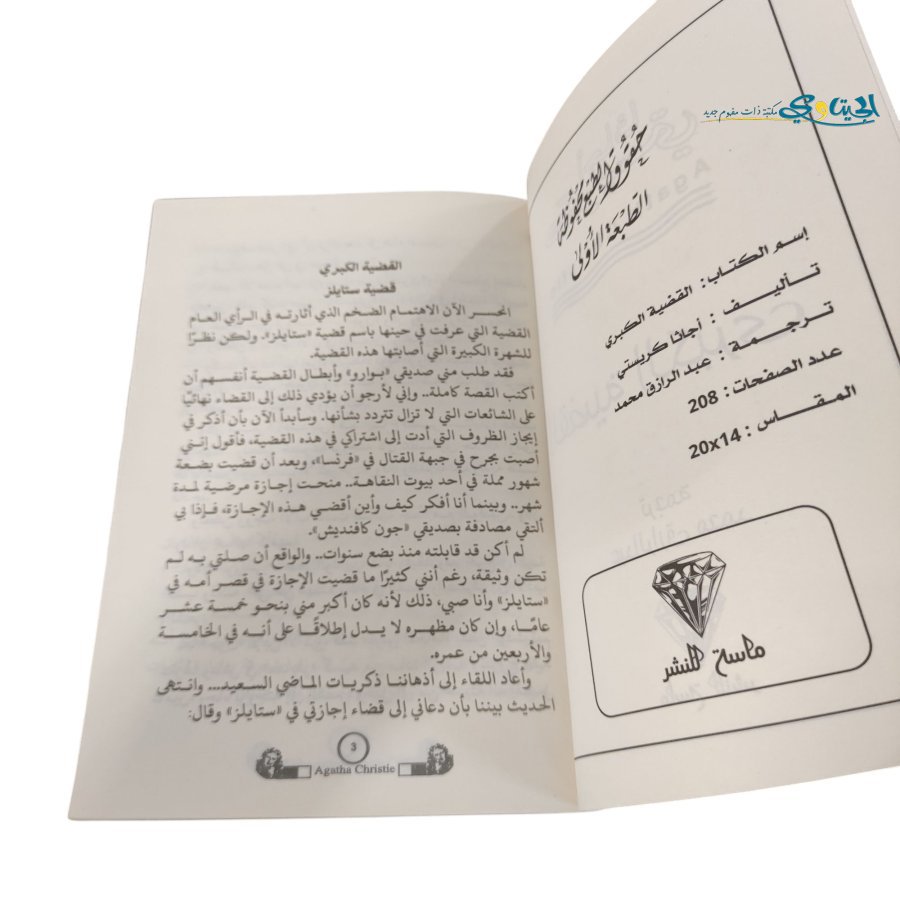 الجيتاوي مكتبة ذات مفهوم جديد
حقوق الطبع محفوظة
الطبعة الأولى
إسم الكتاب: القضية الكبري
تأليف: أجاثا كريستي
ترجمة: عبد الرازق محمد
عدد الصفحات: 208
المقاس: 14x20
ماسة للنشر
القضية الكبري
قضية ستايلز
انحسر الآن الاهتمام الضخم الذي أثارته في الرأي العام
القضية التي عرفت في حينها باسم قضية «ستايلز». ولكن نظرًا
للشهرة الكبيرة التي أصابتها هذه القضية.
فقد طلب مني صديقي «بوارو» وأبطال القضية أنفسهم أن
أكتب القصة كاملة.. وإني لأرجو أن يؤدي ذلك إلى القضاء نهائيًا
على الشائعات التي لا تزال تتردد بشأنها. وسأبدأ الآن بأن أذكر في
إيجاز الظروف التي أدت إلى اشتراكي في هذه القضية، فأقول إنني
أصبت بجرح في جبهة القتال في «فرنسا»، وبعد أن قضيت بضعة
شهور مملة في أحد بيوت النقاهة.. منحت إجازة مرضية لمدة
شهر.. وبينما أنا أفكر كيف وأين أقضي هذه الإجازة، فإذا بي
ألتقي مصادفة بصديقي «جون كافنديش».
لم أكن قد قابلته منذ بضع سنوات.. والواقع أن صلتي به لم
تكن وثيقة، رغم أنني كثيرًا ما قضيت الإجازة في قصر أمه في
«ستايلز» وأنا صبي، ذلك لأنه كان أكبر مني بنحو خمسة عشر
عامًا، وإن كان مظهره لا يدل إطلاقًا على أنه في الخامسة
والأربعين من عمره.
وأعاد اللقاء إلى أذهاننا ذكريات الماضي السعيد... وانتهى
الحديث بيننا بأن دعاني إلى قضاء إجازتي في «ستايلز» وقال:
3
Agatha Christie